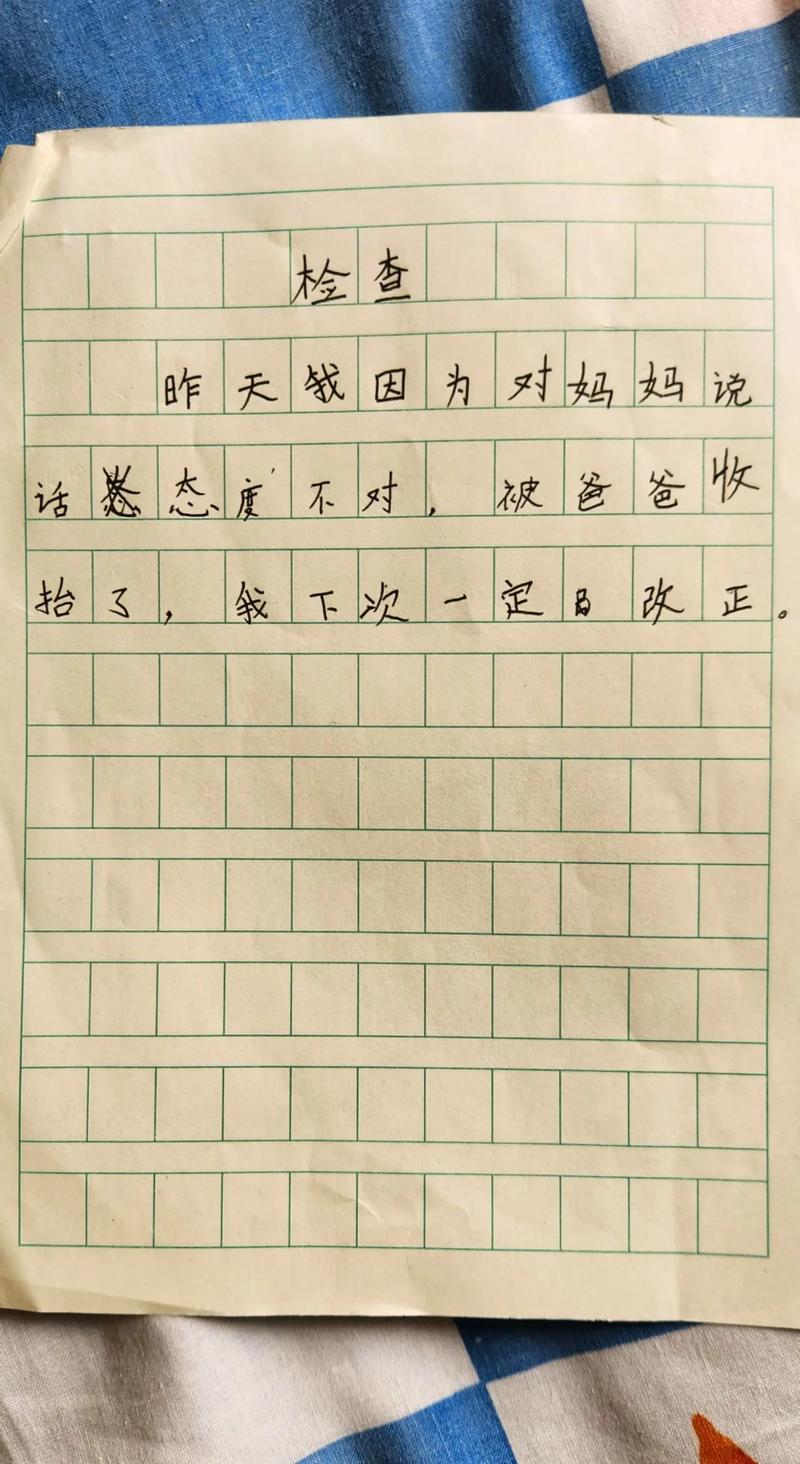 检查
昨天我因为对妈妈说
话态度不对，被爸爸收
抬了，我下次一定改正。